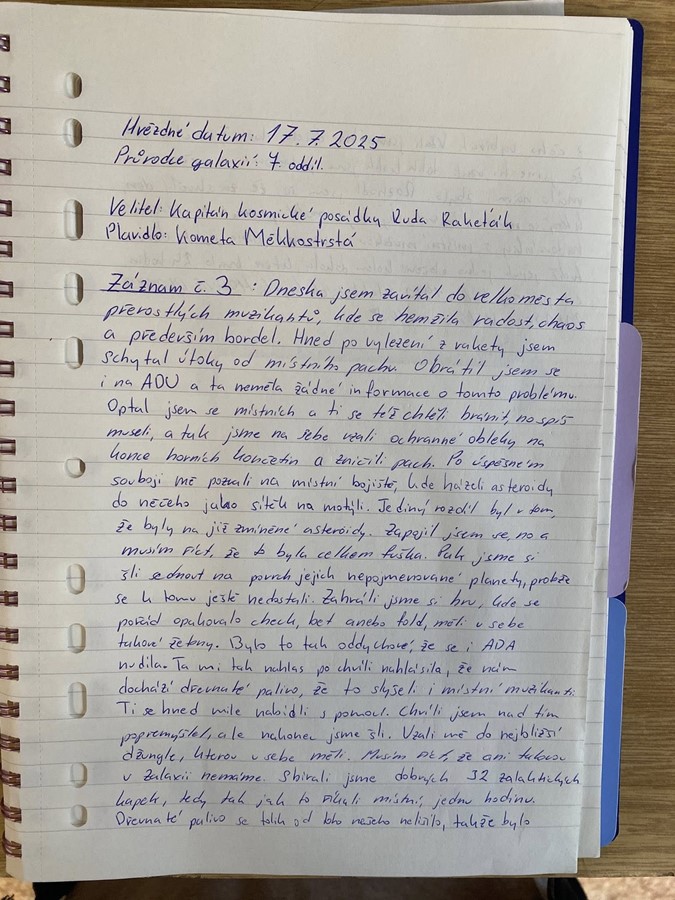 Hvězdné datum: 17.7.2025
Průvodce galaxií: 7. oddíl.
Velitel: Kapitán kosmické posádky Ruda Raketák
Plavidlo: Kometa Měkkostrstá
Záznam č. 3 : Dneska jsem zavítal do velkoměsta
přerostlých muzikantů, kde se hemžila radost, chaos
a především bordel. Hned po vylezení z rakety jsem
schytal útoky od místního pachu. Obrátil jsem se
i na ADU a ta neměla žádné informace o tomto problému.
Optal jsem se místních a ti se též chtěli bránit, no spíš
museli, a tak jsme na sebe vzali ochranné obleky na
konce horních končetin a zničili pach. Po úspěšném
souboji mě pozvali na místní bojiště, kde házeli asteroidy
do něčeho jako síťek na motýli. Jediný rozdíl byl v tom,
že byly na již zmíněné asteroidy. Zapojil jsem se, no a
musím říct, že to byla celkem fuška. Pak jsme si
šli sednout na povrch jejich nepojmenované planety, protže
se k tomu ještě nedostali. Zahráli jsme si hru, kde se
pořád opakovalo check, bet anebo fold, měli u sebe
takové žetony. Bylo to tak oddychové, že se i ADA
nudila. Ta mi tak nahlas po chvíli nahlásila, že nám
dochází dřevnaté palivo, že to slyšeli i místní muzikanti.
Ti se hned mile nabídli s pomocí. Chvíli jsem nad tím
popremýšlel, ale nakonec jsme šli. Vzali mě do nejbližší
džungle, kterou u sebe měli. Musím říct, že ani takovou
v Zalaxii nemáme. Sbírali jsme dobrých 32 zalaktických
kapek, tedy tak jak to říkali místní, jednu hodinu.
Dřevnaté palivo se tolik od toho našeho nelišilo, takže bylo